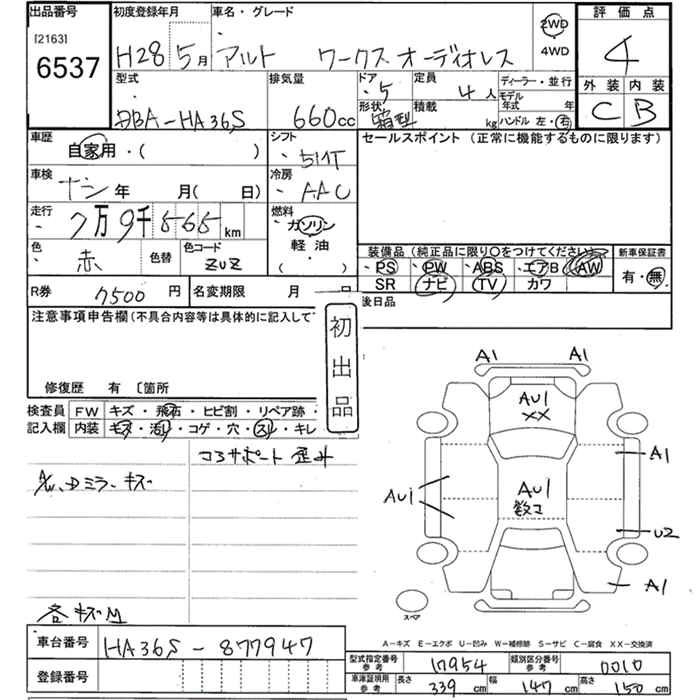 出品番号 初度登録年月 車名・グレード 評価点
[2163]
6537 H28 5月 アルト ワークス オーディオレス 2WD 4WD 4
型式 排気量 ドア 定員 ディーラー・並行 外装 内装
DBA-HA36S 660cc 5 4人 モデル年式 年 C B
形状 箱型 積載 kg ハンドル 左・右
車歴 シフト セールスポイント (正常に機能するものに限ります)
自家用・( ) 5MT
車検 ナシ 年 月( 日) 冷房 AAC
走行 7万9千565km 燃料 ガソリン
軽油
・( )
色 赤 色替 色コード ZUZ
装備品(純正品に限り○をつけてください) 新車保証書
・PS ・PW ・ABS ・エアB AW 有・無
SR ナビ TV カワ
R券 7500円 名変期限 月 日 後日品
注意事項申告欄(不具合内容等は具体的に記入して下
初出品
修復歴 有 〔箇所
検査員 FW キズ・飛石・ヒビ割・リペア跡・
記入欄 内装 キズ・汚れ・コゲ・穴・スレ・キレ
コアサポート 歪み
AW、Dミラーキズ
各キズM
A1 A1
AU1
XX
A1
AU1 AU1
数コ
U2
A1
スペア
A-キズ E-エクボ U-凹み W-補修跡 S-サビ C-腐食 XX-交換済
車台番号 HA36S-877947
登録番号
型式指定番号 参考 17954 類別区分番号 参考 0010
車庫証明用 参考 長さ 339cm 幅 147cm 高さ 150cm